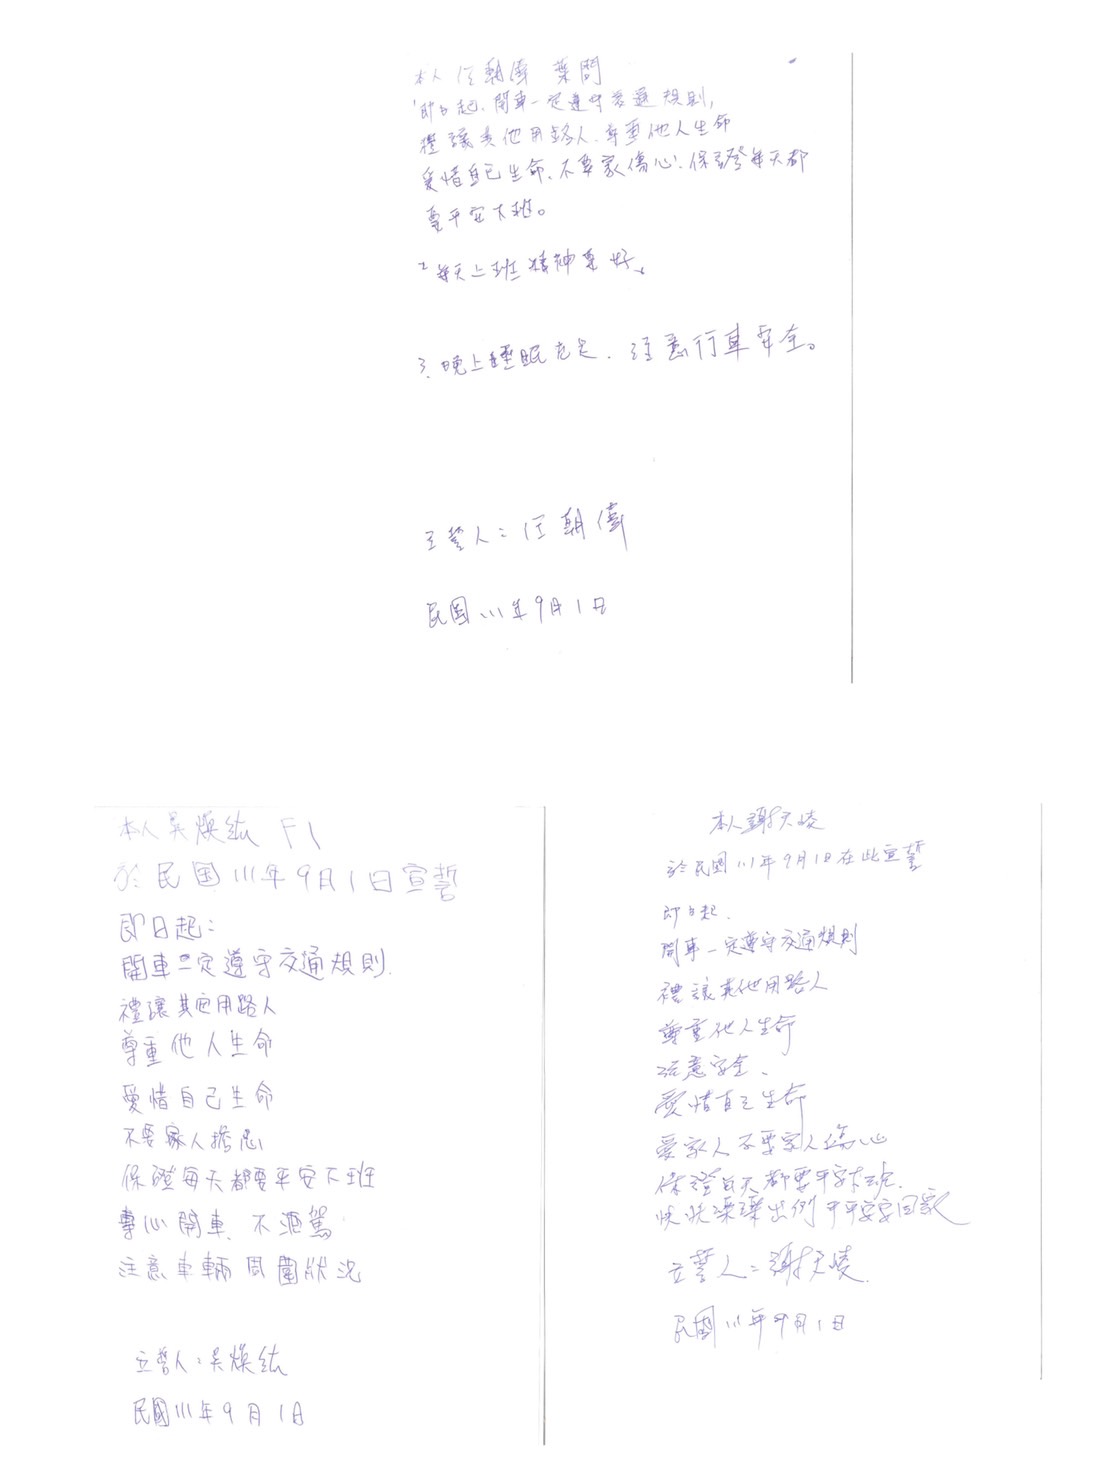 本人 任朝偉 葉問
1即日起.開車一定遵守交通規則,
禮讓其他用路人.尊重他人生命
愛惜自己生命.不要家傷心.保證每天都
要平安下班。
2每天上班精神要好、
3.晚上睡眠充足.注意行車安全。
立誓人:任朝偉
民國111年9月1日
本人吳煥紘 F1
於民國111年9月1日宣誓
即日起:
開車一定遵守交通規則.
禮讓其它用路人
尊重他人生命
愛惜自己生命
不要家人擔心
保證每天都要平安下班
專心開車、不酒駕
注意車輛周圍狀況
立誓人:吳煥紘
民國111年9月1日
本人謝天崚
於民國111年9月1日在此宣誓
即日起.
開車一定遵守交通規則
禮讓其他用路人
尊重他人生命
注意安全、
愛惜自己生命
愛家人不要家人傷心
保證每天都要平安下班.
快快樂樂出 平平安安回家
立誓人:謝天崚.
民國111年9月1日